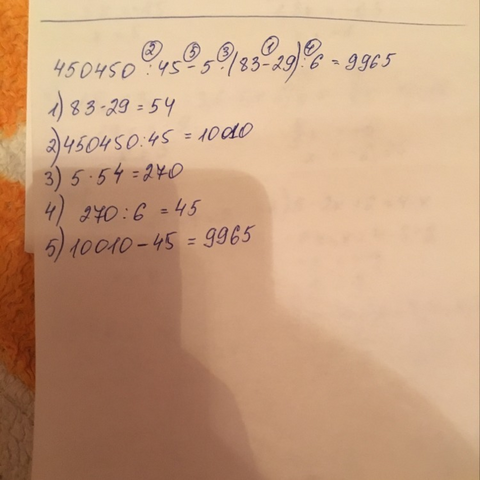 ② ⑤ ③ ① ④
450450 : 45 - 5 · (83-29) : 6 = 9965
1) 83-29 = 54
2) 450450 : 45 = 10010
3) 5 · 54 = 270
4) 270 : 6 = 45
5) 10010 - 45 = 9965